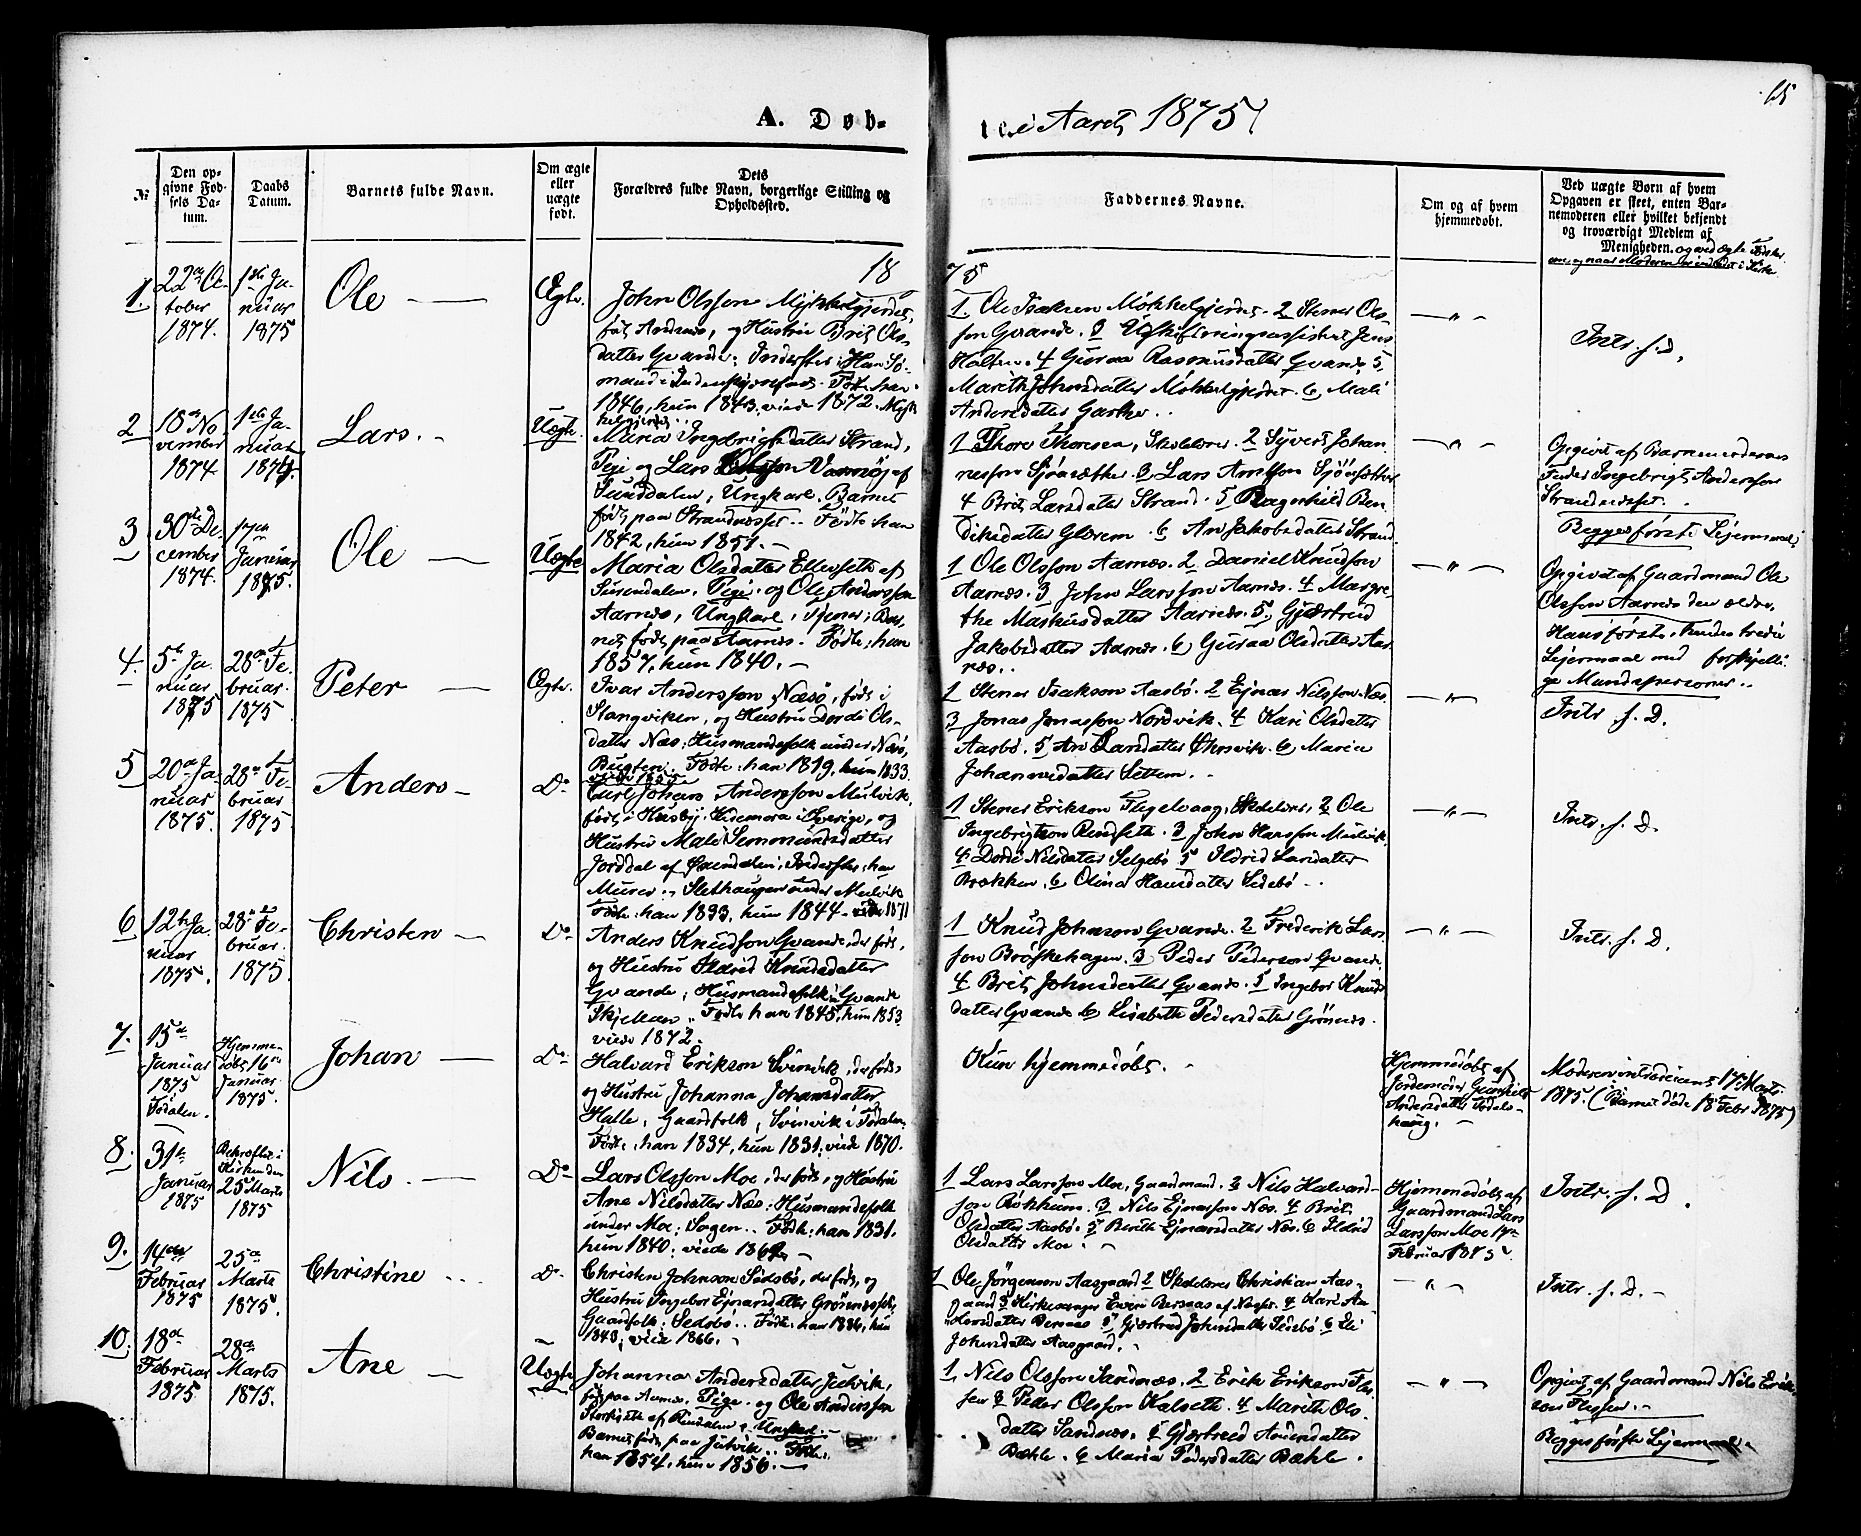 65
A. Døb-
te i Aaret 1875
№
Den op-
givne Fød-
sels Da-
tum.
Daabs
Datum.
Barnets fulde Navn.
Om ægte
eller
uægte
født.
Dets
Forældres fulde Navn, borgerlige Stilling og
Opholdssted.
Faddernes Navne.
Om og af hvem
hjemmedøbt.
Ved uægte Børn af hvem
Opgaven er skeet, enten Bar-
nemoderen eller hvilket bekjendt
og troværdigt Medlem af
Menigheden. og ved ægte
18 75
1.
tober
1874.
nuar
1875
Ole
Ægte.
John Olsson
og Hustru Brit Ols-
datter Qvande: Inderster: Han Sø-
mand i
1846, hun 1843. viede 1872.
1. Ole Isaksen 2 Stener Ols-
son Qvande. 3 Jens
4 Guraa Rasmusdatter Qvande 5
Marith Johnsdatter 6 Mali
Andersdatter
Intr. s. D.
2
18 No
vember
1874
nuar
Lars.
Uægte.
Maria Ingebrigtsdatter Strand,
Pige og Lars
Sunddalen, Ungkarl. Barnet
født paa Strandnæsset. Fødte: han
1842, hun 1851.
1 Thore Thoresen, Skolelærer. 2 Syvert Johan-
nesson 3 Lars
4 Brit Larsdatter Strand. 5 Ragenhild Ben-
diksdatter Glærem. 6 An Jakobsdatter Strand.
Opgivet af Barnemoderens
Fader Ingebrigt Andersson
Strandnæsset.
Begges første Lejermaal
3
30te De-
cember
1874.
17de
Januar
1875.
Ole
Uægte
Maria Olsdatter af
Surendalen, Pige. og Ole Andersson
Aarnes, Ungkarl, Tjener; Bar-
net født paa Aarnes. Fødte: han
1857, hun 1840.
1 Ole Olsson Aarnes. 2 Daniel Knudson
Aarnes. 3 John Larsson Aarnes. 4 Margre-
the Markusdatter Aarnes. 5 Gjertrud
Jakobsdatter Aarnes. 6 Guraa Olsdatter Aar-
nes.
Opgivet af Gaardmand Ole
Olsson Aarnes den ældre.
Hans første, hendes tredie
Lejermaal med forskjelli-
ge Mandspersoner.
4.
5te Ja-
nuar
1875
28de Fe-
bruar.
1875.
Peter
Ægte.
Ivar Andersson Næsø, født i
Stangviken, og Hustru Dordi Ols-
datter Næs: Husmandsfolk under Næs,
Bugten. Fødte: han 1819, hun 1833.
viede 1855
1 Stener Isakson Aasbø. 2 Ejnar Nilsson Næs.
3 Jonas Jonasson Nordvik. 4 Kari Olsdatter
Aasbø. 5 An Larsdatter 6 Maria
Johannesdatter Settem.
Intr. s. D.
5
20de Ja-
nuar
1875.
28de Fe-
bruar
1875.
Anders
Do
Carl Johan Andersson Mulvik,
født i Husby, Hedemora i Sverige, og
Hustru Mali Semmundsdatter
Jorddal af Inderster, han
Murer. Slethaugen under Mulvik
Fødte: han 1833, hun 1844. viede 1871
1 Stener Erikson Fugelvaag, Skolelærer, 2 Ole
Ingebrigtson Rindseth. 3 John Hansson Mulvik
4 Dordi Nilsdatter Selgebø 5 Ildrid Larsdatter
Brækken. 6 Olina Hansdatter Sedebø.
Intr. s. D.
6
12te Ja-
nuar
1875.
28de Fe-
bruar.
1875.
Christen
Do
Anders Knudson Qvande, der født,
og Hustru Ildrid Knudsdatter
Qvande; Husmandsfolk i Qvande
Fødte han 1845, hun 1853
viede 1872.
1 Knud Johnson Qvande. 2 Frederik Lars-
son Brøskehagen. 3 Peder Pederson Qvande.
4 Brit Johnsdatter Qvande. 5 Ingebor Knuds-
datter Qvande 6 Lisabeth Pedersdatter Grønnes.
Intr. s. D.
7.
15de
Januar
1875
Todalen.
Hjemme-
døbt 16de
Januar
1875.
Johan
Do
Halvard Erikson Svinvik, der født,
og Hustru Johanna Johansdatter
Halle, Gaardfolk, Svinvik i Todalen.
Fødte: han 1834, hun 1831, viede 1870.
Kun hjemmedøbt.
Hjemmedøbt af
Jordemoder
Andersdatter Todals-
haug.
Moderen introduceret 17 Marts
1875. (Barnet døde 18 Febr 1875)
8.
31te
Januar
1875
Bekræftet i
Kirken den
25 Marts
1875
Nils.
Do
Lars Olsson Moe, der født, og Hustru
Ane Nilsdatter Næs: Husmandsfolk
under Moe: Fødte: han 1831.
hun 1840: viede
1 Lars Larsson Moe, Gaardmand. 2 Nils Halvard-
son Røkkum. 3 Nils Ejnarsson Næs. 4 Brit
Olsdatter Aasbø. 5 Berith Ejnarsdatter Næs. 6 Ildrid
Olsdatter Moe.
Hjemmedøbt af
Gaardmand Lars
Larsson Moe 17de
Februar 1875.
Intr. s. D.
9.
14de
Februar
1875
25de
Marts
1875.
Christine
Do
Christen Johnson Sedebø, der født, og
Hustru Ingebor Ejnarsdatter
Gaardfolk: Sedebø. Fødte: han 1836, hun
1843, viede 1866.
1 Ole Jørgenson Aasgaard 2 Skolelærer Christian Aas-
gaard 3 Kirkesanger 4 Kari An-
dersdatter 5 Gjertrud Johnsdatter Sedebø 6 Eli
Johnsdatter Aasgaard.
Intr. s. D.
10.
18de
Februar
1875
28de
Marts
1875.
Ane
Uægte
Johanna Andersdatter Jutvik,
født paa Aarnes. Pige. og Ole Andersson
af Rindalen, Ungkarl.
Barnet født paa Jutvik. Fødte:
han 1854, hun 1856.
1, Nils Olsson Sandnes. 2 Erik Erikson
3 Peder Olsson Kalseth. 4 Marith Ols-
datter Sandnes. 5 Gjertrud Andersdatter
Bækle. 6 Maria Pedersdatter Bækle.
Opgivet af Gaardmand Nils Erik-
son
Begges første Lejermaal.